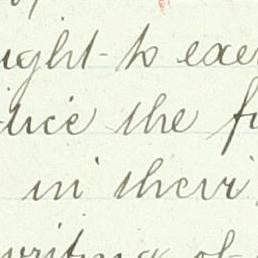 ught to exer
tice the fu
in their
writing of